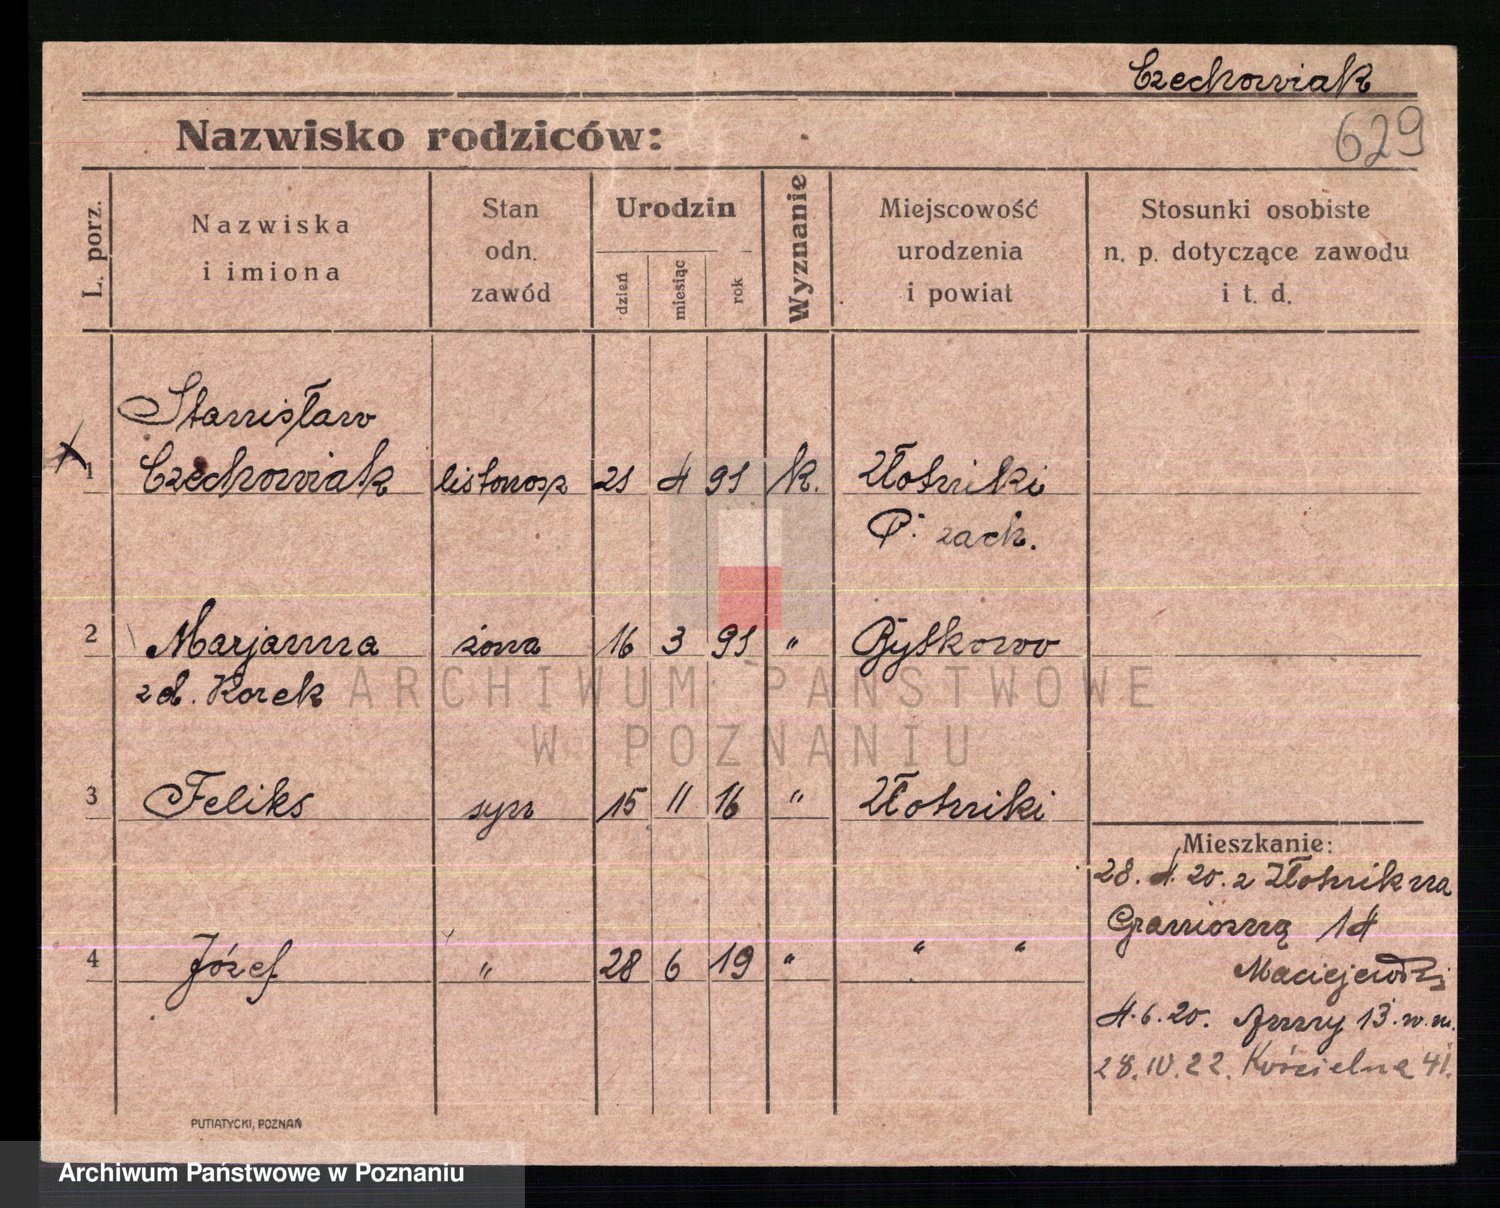 Czechowiak
629
Nazwisko rodziców:
L. porz.
Nazwiska
i imiona
Stan
odn.
zawód
Urodzin
dzień
miesiąc
rok
Wyznanie
Miejscowość
urodzenia
i powiat
Stosunki osobiste
n. p. dotyczące zawodu
i t. d.
Stanisław
1 Czechowiak listonosz 21 4 91 k. Złotniki
P. zach.
2 Marjanna żona 16 3 91 " Bytkowo
zd. Korek
3 Feliks syn 15 11 16 " Złotniki
4 Józef " 28 6 19 " " "
Mieszkanie:
28. 4. 20. z Złotnik na
Graniczną 14
Maciejewski
4.6.20. Anny 13. w. m.
28.IV.22. Kościelna 41.
PUTIATYCKI, POZNAŃ
ARCHIWUM PAŃSTWOWE
W POZNANIU
Archiwum Państwowe w Poznaniu